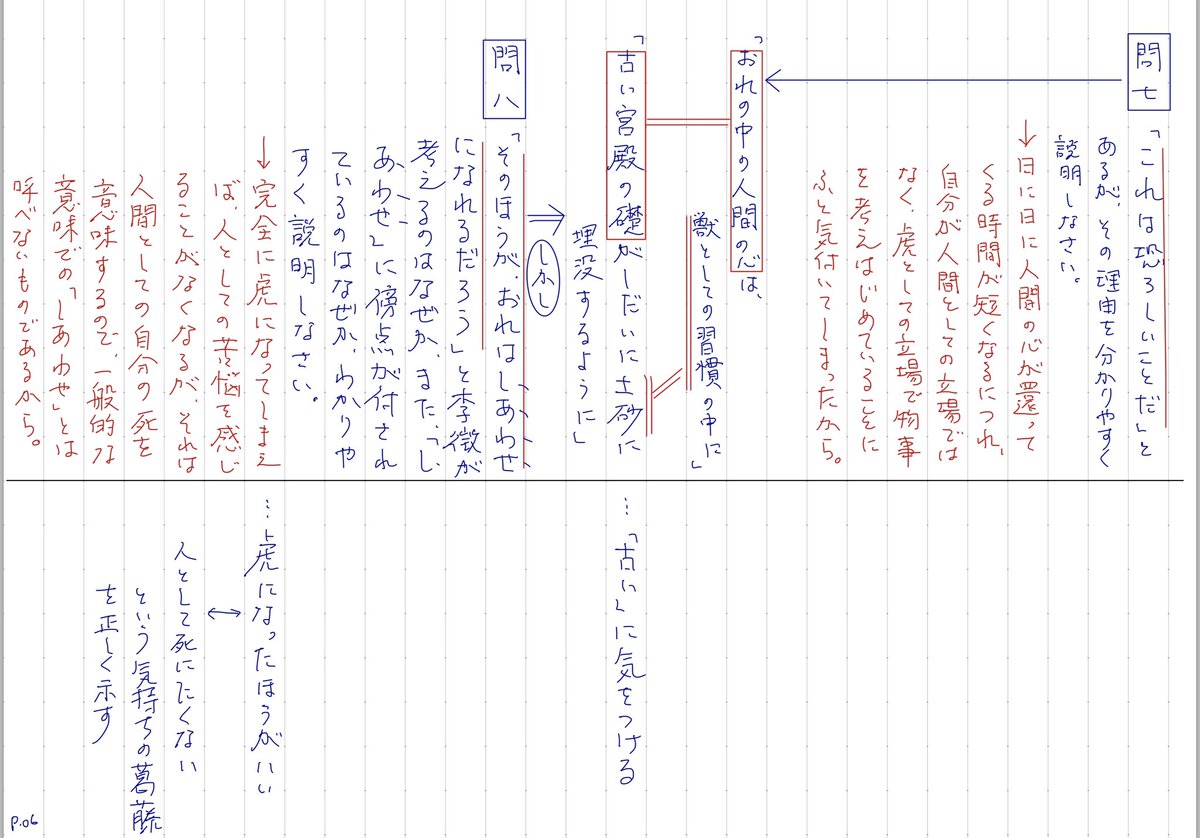 問七
「これは恐ろしいことだ」と
あるが、その理由を分かりやすく
説明しなさい。
→日に日に人間の心が還って
くる時間が短くなるにつれ、
自分が人間としての立場では
なく、虎としての立場で物事
を考えはじめていることに
ふと気付いてしまったから。
「おれの中の人間の心は、
獣としての習慣の中に」
「古い宮殿の礎がしだいに土砂に
埋没するように」
…「古い」に気をつける
しかし
問八
「そのほうが、おれはしあわせ
になれるだろう」と李徴が
考えるのはなぜか、また、「し
あわせ」に傍点が付され
ているのはなぜか、わかりや
すく説明しなさい。
→完全に虎になってしまえ
ば、人としての苦悩を感じ
ることがなくなるが、それは
人間としての自分の死を
意味するので、一般的な
意味での「しあわせ」とは
呼べないものであるから。
…虎になったほうがいい
↔
人として死にたくない
という気持ちの葛藤
を正しく示す
P.06